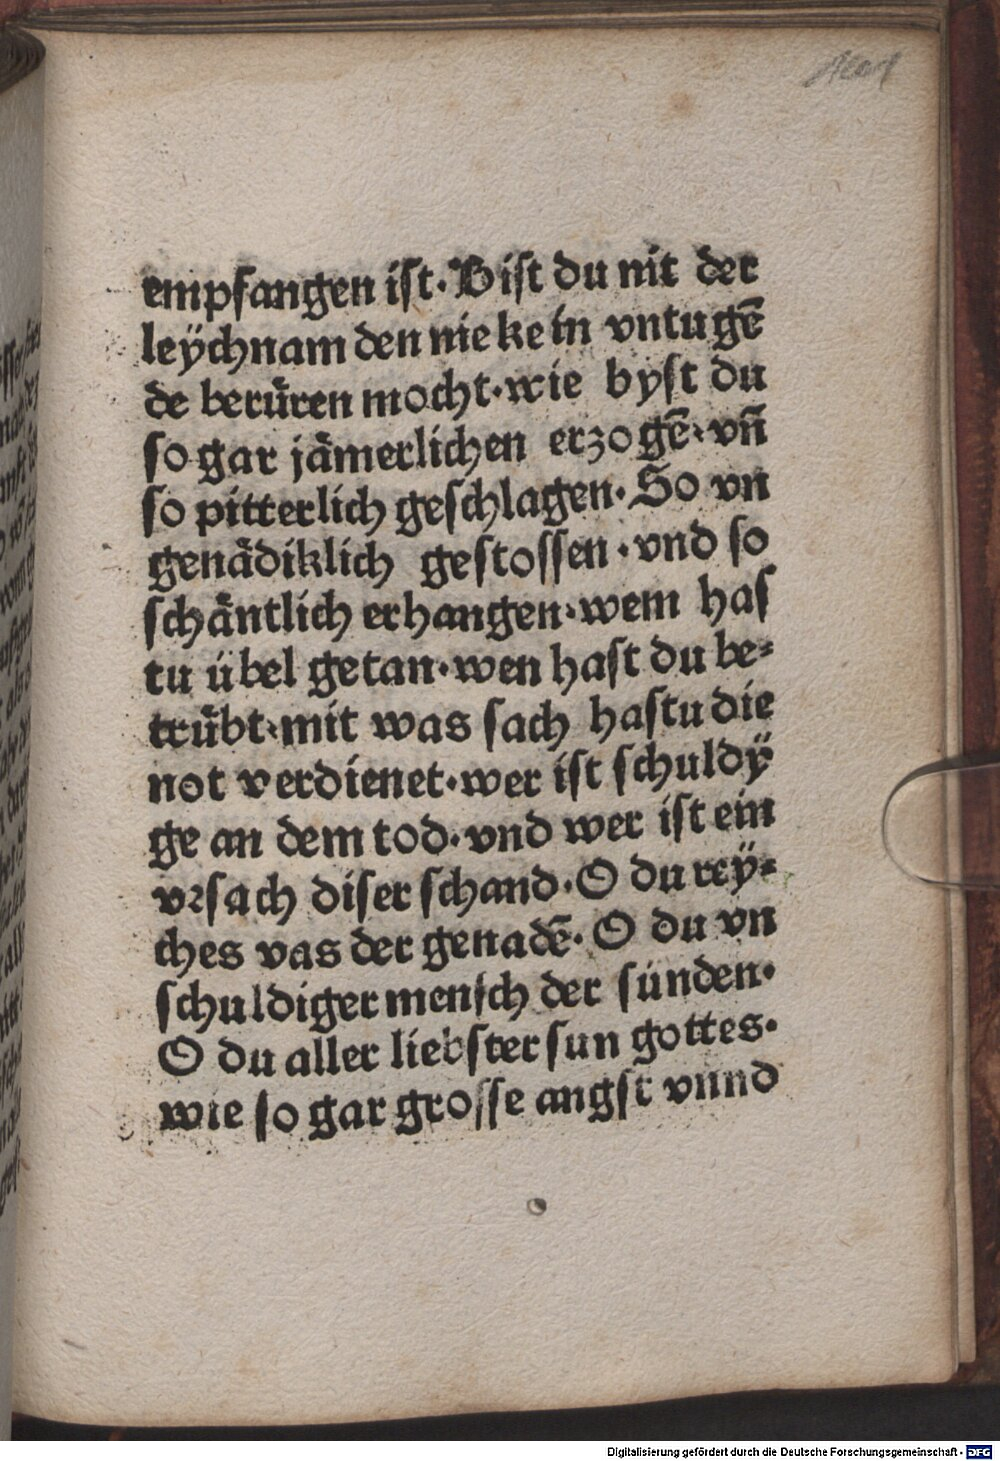 empfangen ist. Bist du nit der
leÿchnam den nie kein vntugē
de berüren mocht. wie byst du
so gar jämerlichen erzogē. vn̄
so pitterlich geschlagen. So vn
genädiklich gestossen. vnd so
schäntlich erhangen. wem has
tu übel getan. wen hast du be⸗
trübt. mit was sach hastu die
not verdienet. wer ist schuldÿ
ge an dem tod. vnd wer ist ein
vrsach diser schand. O du reÿ⸗
ches vas der genadē. O du vn
schuldiger mensch der sünden.
O du aller liebster sun gottes.
wie so gar grosse angst vnnd
Digitalisierung gefördert durch die Deutsche Forschungsgemeinschaft - DFG